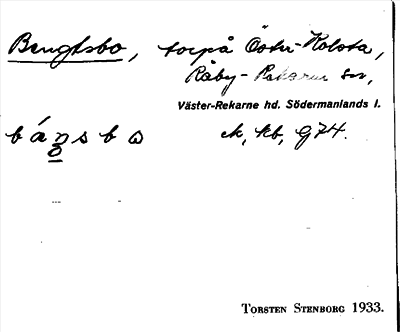 Bengtsbo, torp å Öster-Kolsta,
Råby-Rekarne sn,
Väster-Rekarne hd. Södermanlands l.
ek, kb, G74.
TORSTEN STENBORG 1933.